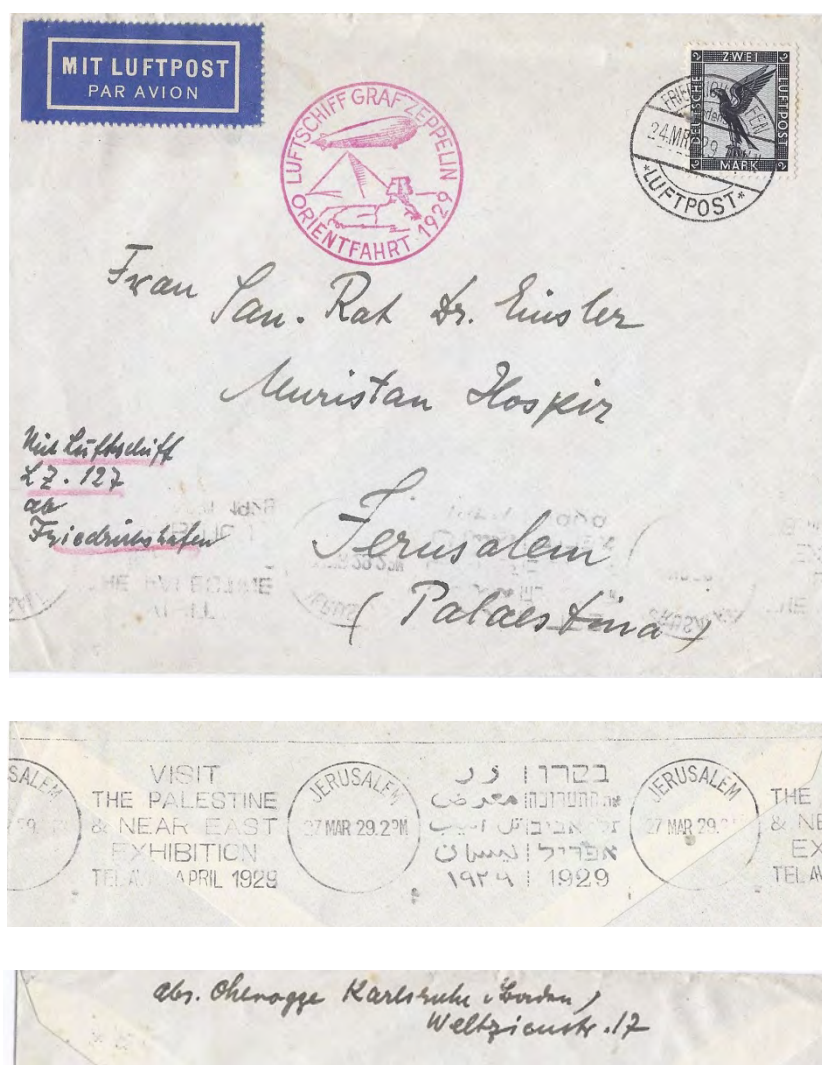 MIT LUFTPOST
PAR AVION
LUFTSCHIFF GRAF ZEPPELIN
ORIENTFAHRT 1929
ZWEI
DEUTSCHE
LUFTPOST
MARK
24.MRZ 29
*LUFTPOST*
Frau San.-Rat Dr. Einsler
Muristan Hospiz
Jerusalem
(Palaestina)
Mit Luftschiff
LZ. 127
ab
Friedrichshafen
VISIT
THE PALESTINE
& NEAR EAST
EXHIBITION
TEL AVIV APRIL 1929
JERUSALEM
27 MAR 29. 2 PM
בקרו | زر
את התערוכה | معرض
תל אביב | تل ابيب
אפריל | نيسان
١٩٢٩ | 1929
JERUSALEM
27 MAR 29.
THE
& NE
EX
TEL AV
SALEM
abs. Ohnogge Karlsruhe (Baden)
Weltzienstr. 17